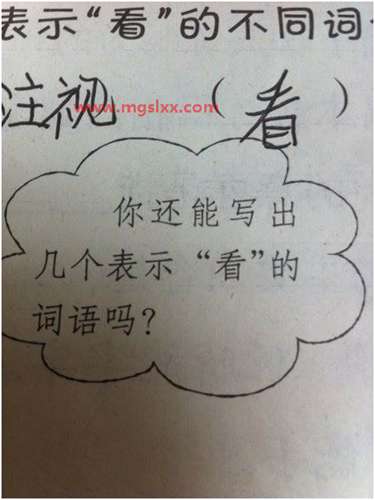 表示“看”的不同词
注视 （看）
www.mgslxx.com
你还能写出
几个表示“看”的
词语吗？